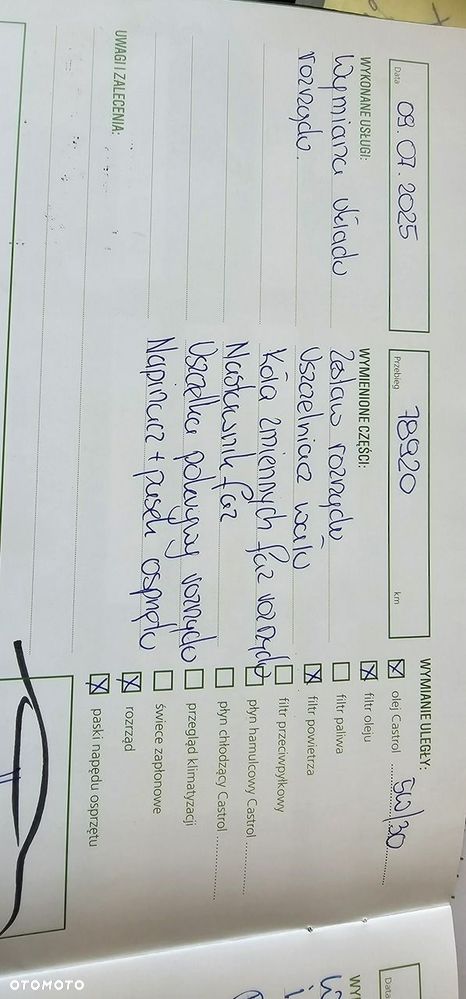 Data 09.07.2025
Przebieg 78920 km
WYKONANE USŁUGI:
Wymiana układu
rozrządu.
WYMIENIONE CZĘŚCI:
Zestaw rozrządu
Uszczelniacz wału
Koła zmiennych faz rozrządu
Nastawnik faz
Uszczelka pokrywy rozrządu
Napinacz + pasek osprzętu
UWAGI I ZALECENIA:
WYMIANIE ULEGŁY:
olej Castrol 5W/30
filtr oleju
filtr paliwa
filtr powietrza
filtr przeciwpyłkowy
płyn hamulcowy Castrol
płyn chłodzący Castrol
przegląd klimatyzacji
świece zapłonowe
rozrząd
paski napędu osprzętu
Data
OTOMOTO